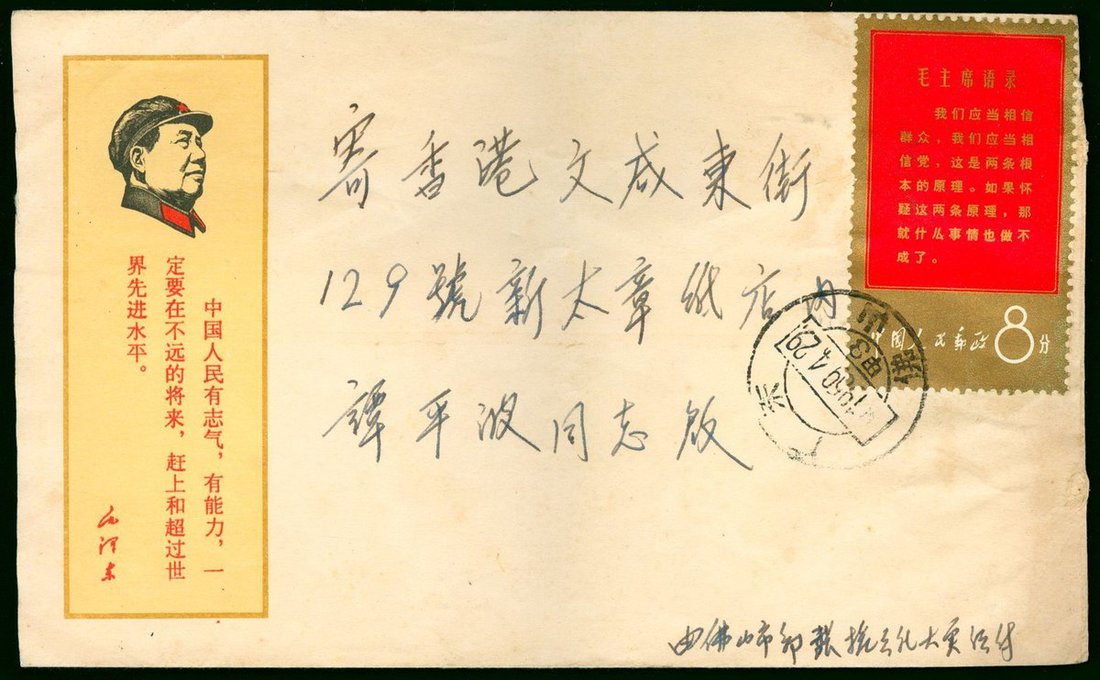 中国人民有志气，有能力，一
定要在不远的将来，赶上和超过世
界先进水平。
毛泽东
寄香港文咸東街
129號新太章纸店内
譚平波同志啟
毛主席语录
我们应当相信
群众，我们应当相
信党，这是两条根
本的原理。如果怀
疑这两条原理，那
就什么事情也做不
成了。
中国人民邮政 8分
1969.4.29
由佛山市